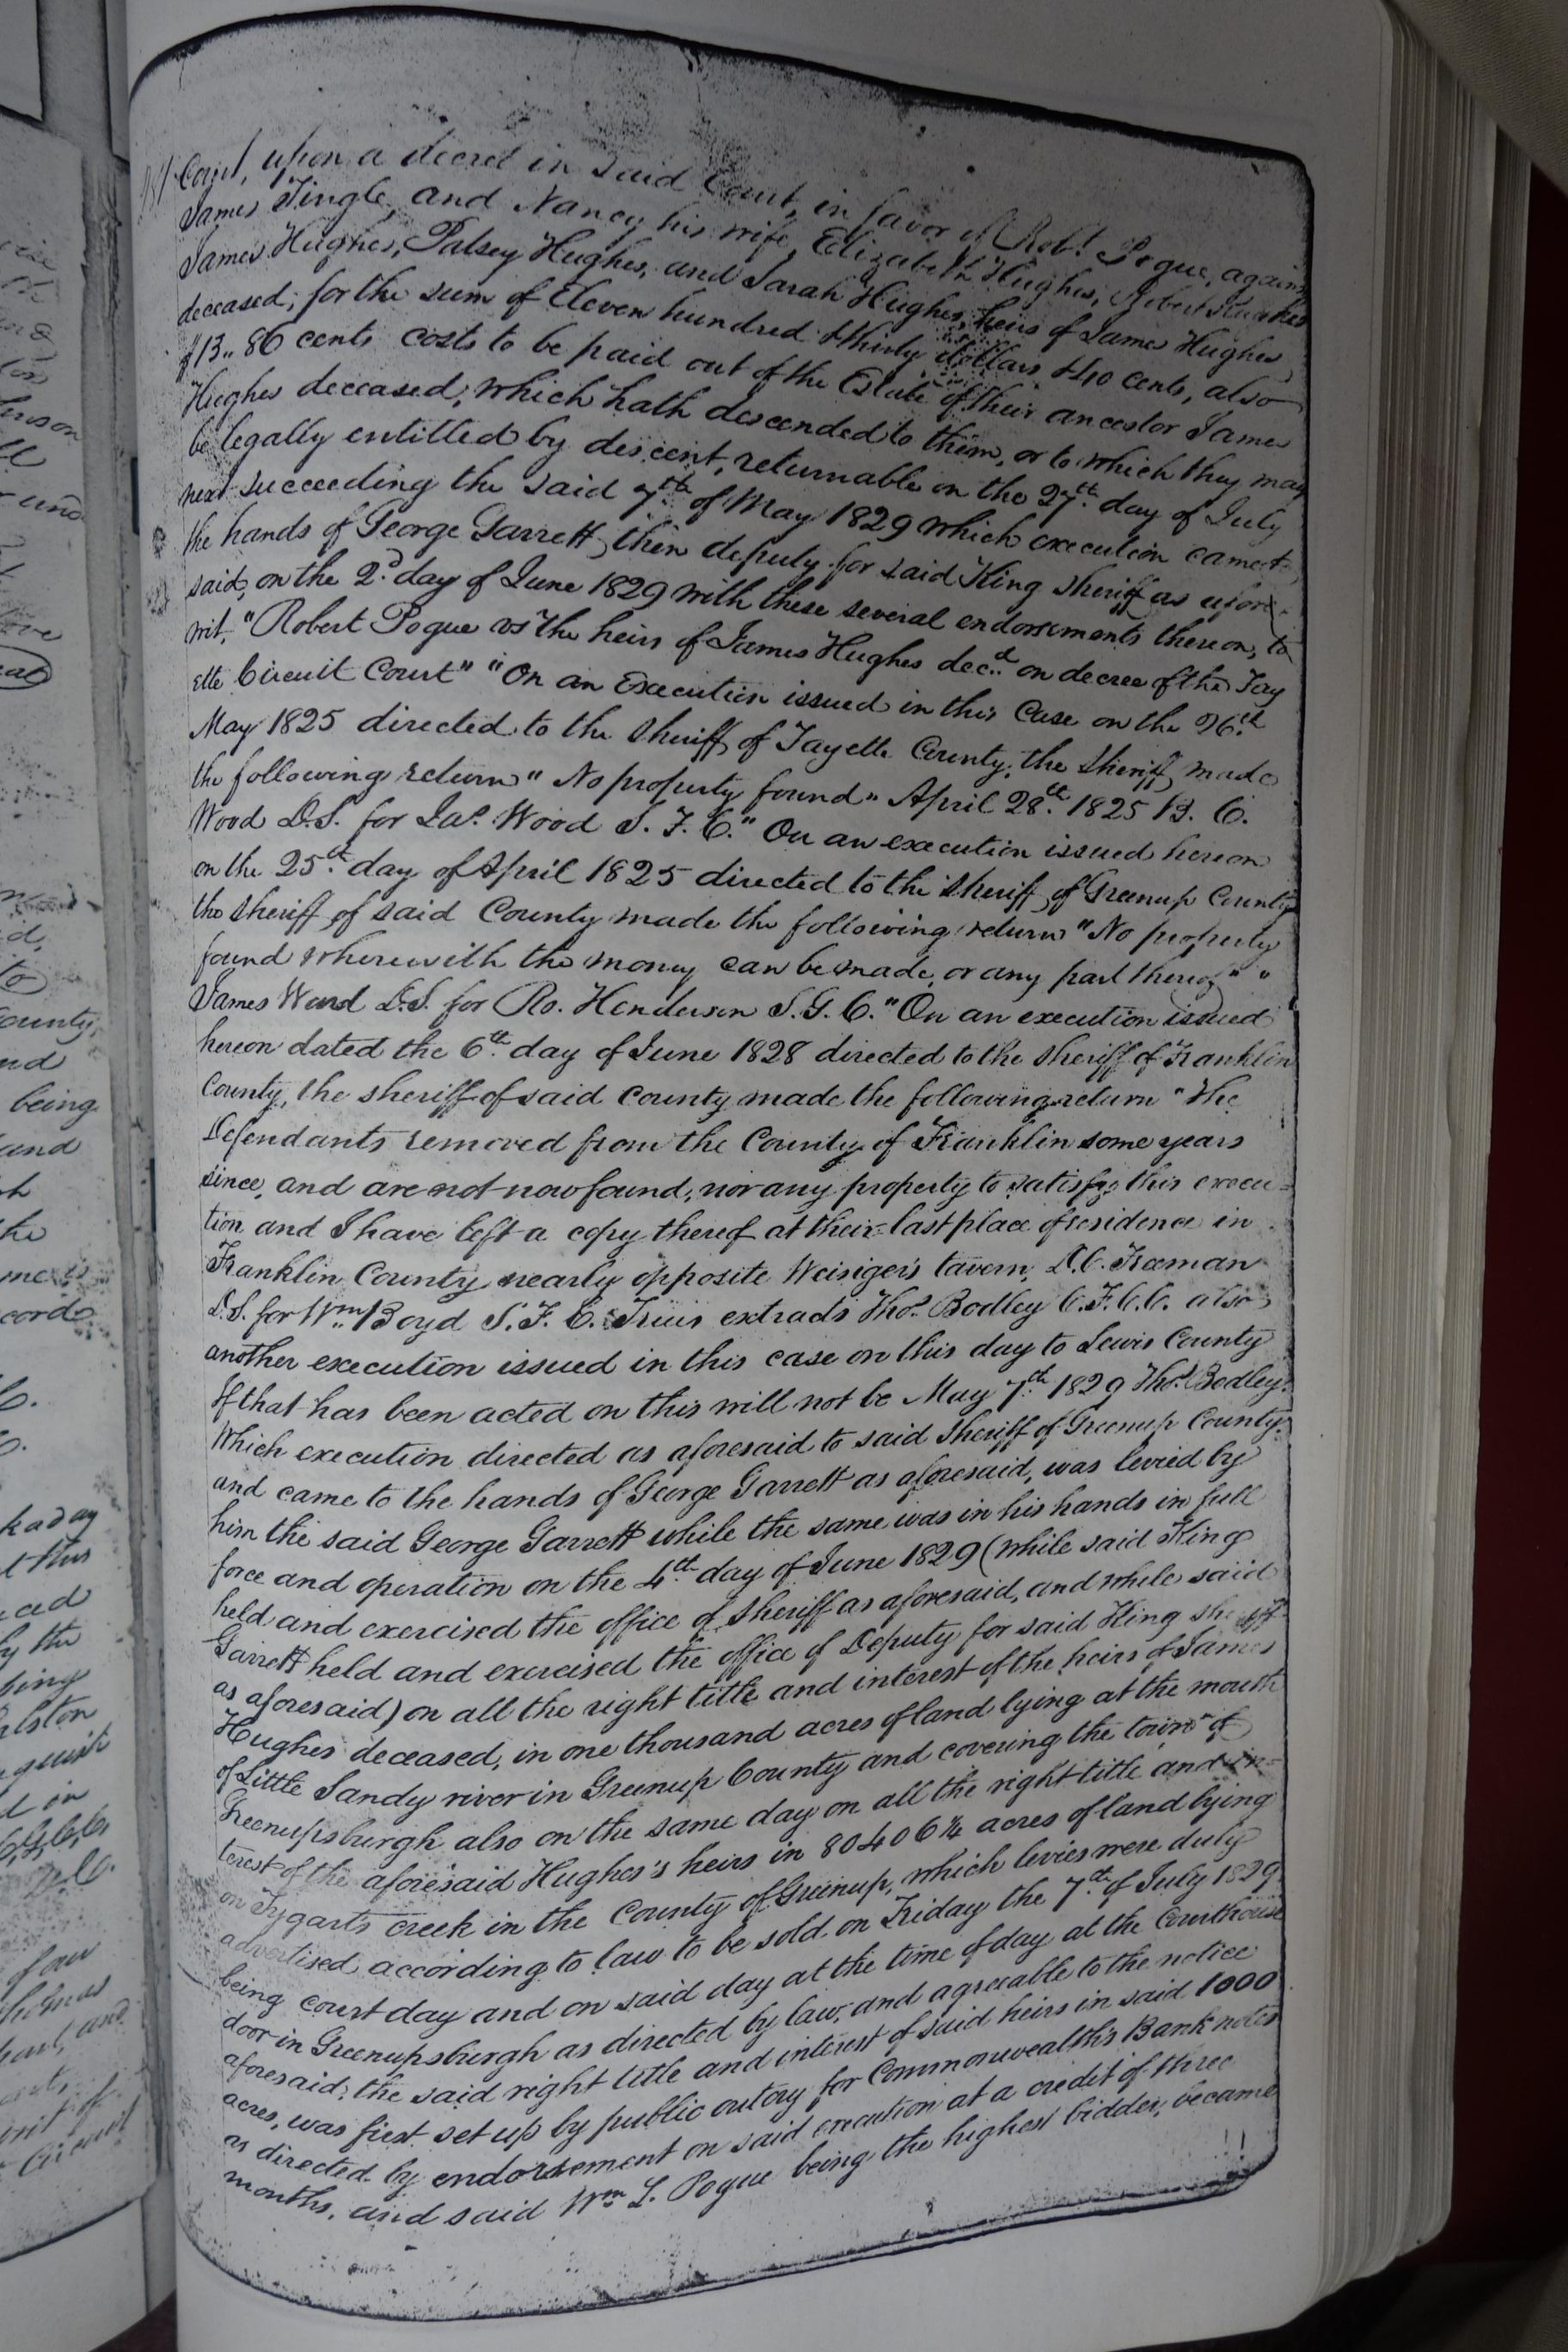 Court, upon a decree in said Court, in favor of Robt. Pogue, against
James Tingle, and Nancy his wife, Elizabeth Hughes, Robert
James Hughes, Patsey Hughes, and Sarah Hughes, heirs of James Hughes
deceased; for the sum of Eleven hundred & thirty dollars & 40 cents, also
$13.. 86 cents costs to be paid out of the Estate of their ancestor James
Hughes deceased, which hath descended to them, or to which they may
be legally entitled by descent, returnable on the 27th day of July
next succeeding the said 7th of May 1829 which execution came to
the hands of George Garrett, then deputy for said King Sheriff as afore-
said, on the 2d day of June 1829 with these several endorsements thereon, to
wit, "Robert Pogue vs the heirs of James Hughes decd. on decree of the Fay
ette Circuit Court" "On an Execution issued in this Case on the 26th
May 1825 directed to the Sheriff of Fayette County, the Sheriff made
the following return" No property found" April 28th 1825 B. C.
Wood D.S. for Jas. Wood S. F. C." On an execution issued hereon
on the 25th day of April 1825 directed to the Sheriff of Greenup County
the Sheriff of said County made the following return "No property
found wherewith the money can be made, or any part thereof" "
James Ward D.S. for Ro. Henderson S.G.C." On an execution issued
hereon dated the 6th day of June 1828 directed to the Sheriff of Franklin
County, the sheriff of said County made the following return "The
Defendants removed from the County of Franklin some years
since, and are not now found, nor any property to satisfy this execu=
tion and I have left a copy thereof at their last place of residence in
Franklin County nearly opposite Weisiger's tavern, D.C. Freeman
D.S. for Wm Boyd S. F. C. extracts Thos. Bodley C.F.C.C. also
another execution issued in this case on this day to Lewis County
If that has been acted on this will not be May 7th 1829 Thos. Bodley.
Which execution directed as aforesaid to said Sheriff of Greenup County.
and came to the hands of George Garrett as aforesaid, was levied by
him the said George Garrett while the same was in his hands in full
force and operation on the 4th day of June 1829 (while said King
held and exercised the office of Sheriff as aforesaid, and while said
Garrett held and exercised the office of Deputy for said King sheriff
as aforesaid) on all the right title and interest of the heirs of James
Hughes deceased, in one thousand acres of land lying at the mouth
of Little Sandy river in Greenup County and covering the town of
Greenupsburgh also on the same day on all the right title and in=
terest of the aforesaid Hughes's heirs in acres of land lying
on Tygarts creek in the County of Greenup, which levies were duly
advertised according to law to be sold on Friday the 7th of July 1829
being court day and on said day at the time of day at the Courthouse
door in Greenupsburgh as directed by law, and agreeable to the notice
aforesaid; the said right title and interest of said heirs in said 1000
acres, was first set up by public outcry for Commonwealth's Bank notes
as directed by endorsement on said execution at a credit of three
months, and said Wm L. Pogue being the highest bidder, became